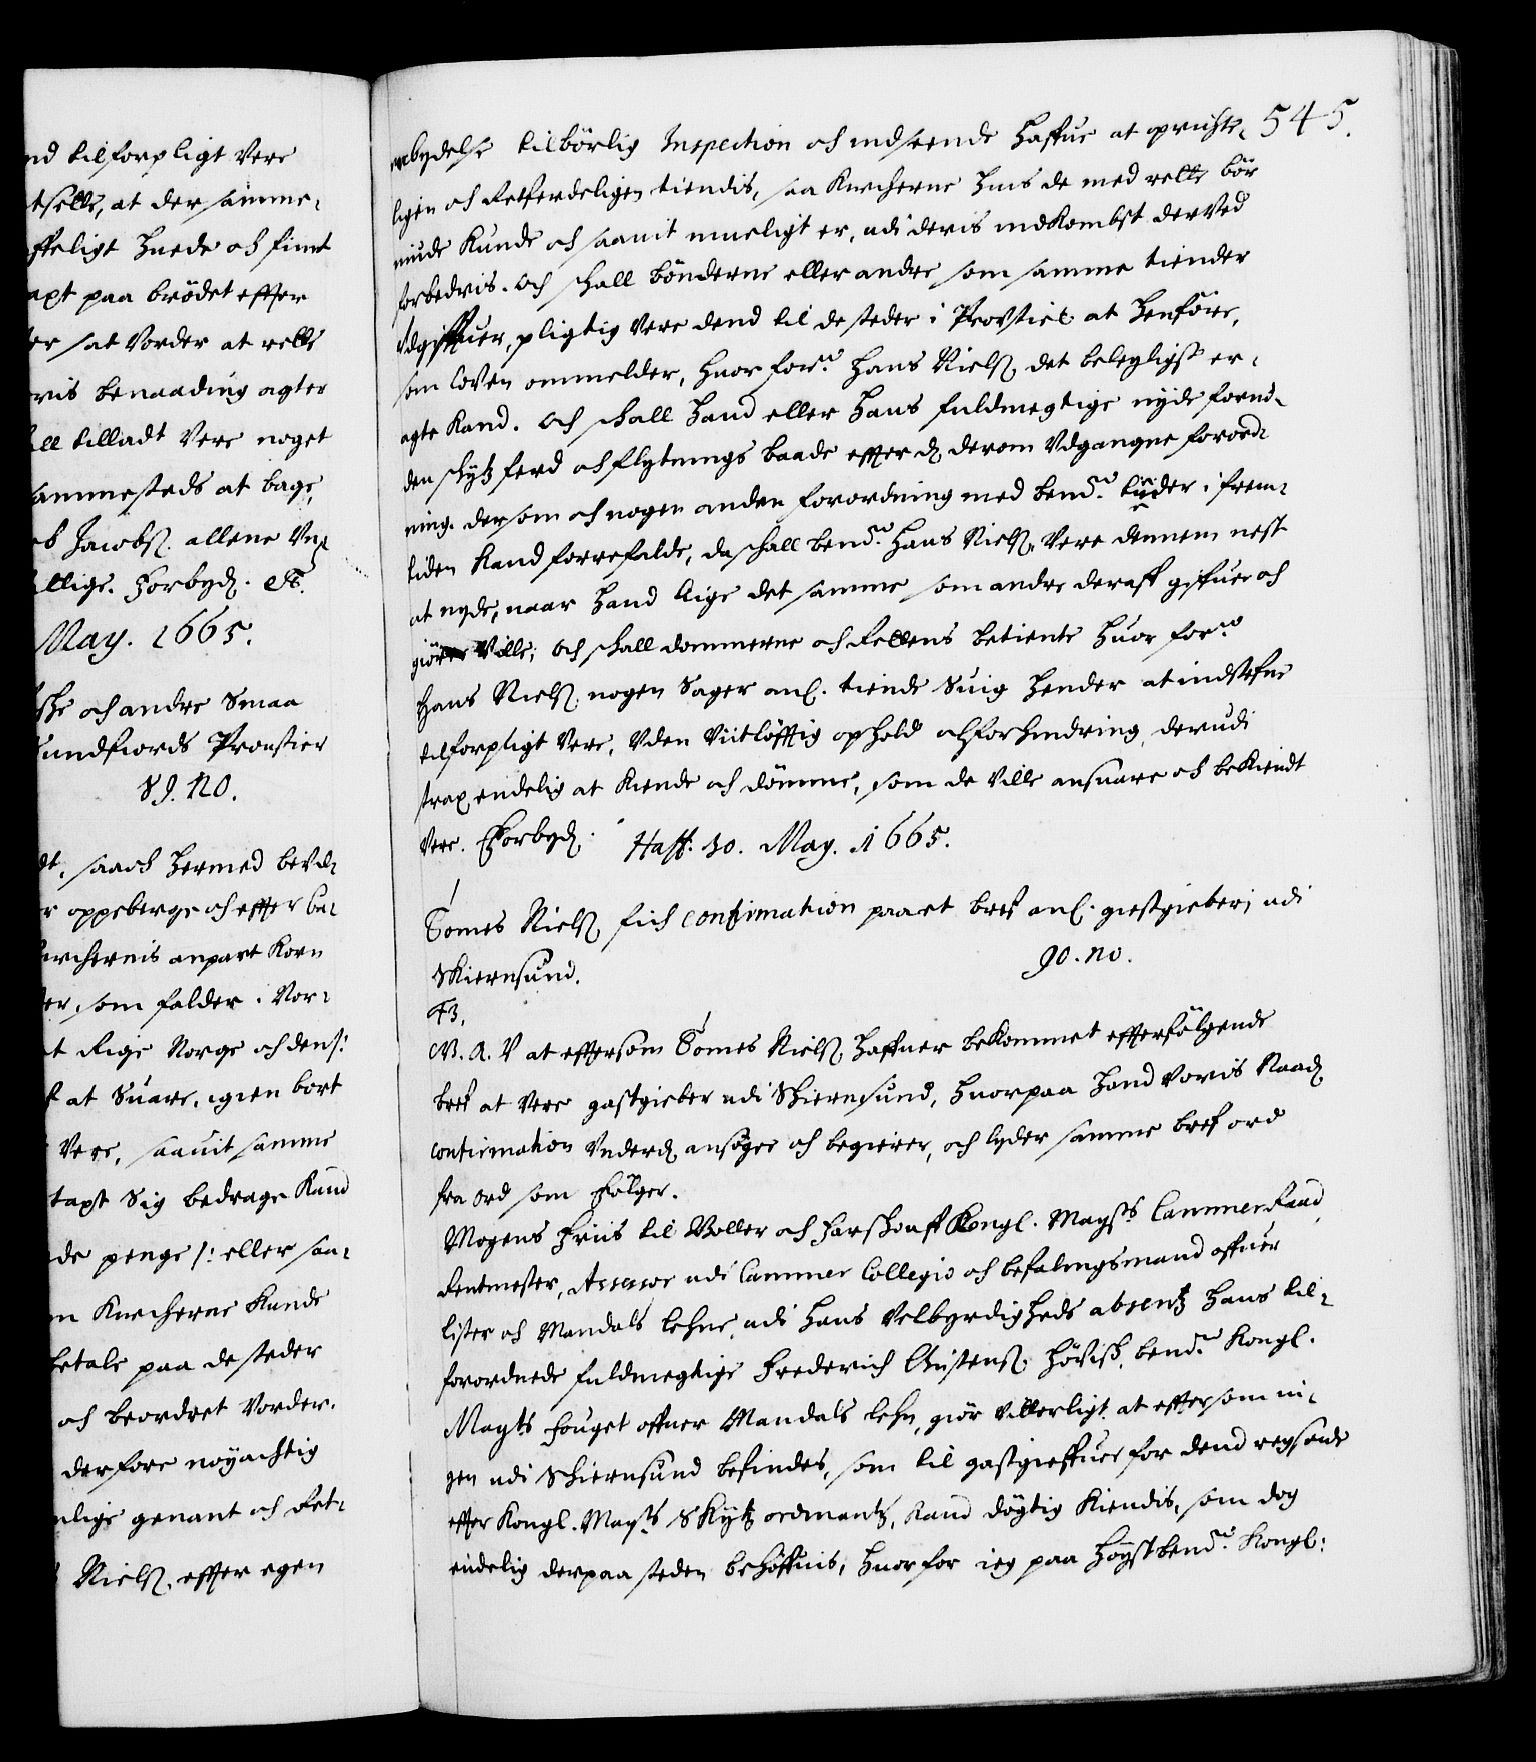 nd tilforpligt Vere
tsells, at der samme-
ffteligt huede och fiint
axt paa brödet effter
ter sat Vorder at rette
oris benaading agter
all tilladt Vere noget
sammesteds at bage,
ob Jacobs. allene Vn-
illige. Forbyd. Etc.
May. 1665.
ske och andre Smaa
Sundfiords Proustier
89. no.
dt, saa och hermed bevil-
r oppeberge och effter be-
Kirchernis anpart Korn
ter, som falder i Vor-
t Rige Norge och den /:
f at Suare, igien bort
Vere, saauit samme
taxt Sig bedrage Kand
de penge /: eller saa-
m Kircherne Kunde
betale paa de steder
och beordret Vorder.
derfore nöyachtig
nlige genant och Ret-
Niels. effter egen
545.
erbydelse tilbörlig Inspection och indseende haffue at oprichte-
ligen och Retferdeligen tiendis, saa Kircherne huis de med rette bör
niude Kunde och saauit mueligt er, udi deris indKombst derVed
forbedris. och schall bönderne eller andre som samme tiender
Vdgiffuer, pligtig Vere dend til de steder i Provstiet at henföre,
som loven ommelder, huor for.ne Hans Niels. det beleyligst er-
agte Kand. och schall hand eller hans fuldmegtige nyde fornö-
den schytz ferd och flytnings baade effter d. derom Vdgangne forord-
ning. dersom och nogen anden forordning med bend.te tiender i frem-
tiden Kand forrefalde, da schall bend.te Hans Niels. Vere dennem nest
at nyde, naar hand lige det samme som andre deraff gifue och
giöre Ville; och schall dommerne och Rettens betiente huor for.ne
Hans Niels. nogen Sager anl. tiende Suig hender at indstefne
tilforpligt Vere, Vden Viitlöfftig ophold och forhindring, derudi
strax endelig at Kiende och dömme, som de Ville ansuare och beKiendt
Vere. Forbyd. Haff: 30. May. 1665.
Tomes Niels. fich confirmation paa et bref anl. giestgieberi udi
Skiernsund. 90. no.
F3.
G. A. V at eftersom Tomes Niels. haffuer beKommet effterfölgende
bref at Vere gastgieber udi Skiernsund, huorpaa hand Voris Naad.
confirmation Vnderd. ansöger och begierer, och lyder samme bref ord
fra ord som fölger.
Mogens Friis til Woller och Farskouff Kongl. Mayst.s CammerRaad
Rentmester, Assessor udi Cammer Collegio och befalingsmand offuer
Lister och Mandals Lehne, udi hans Velbyrdigheds absentz hans til-
forordnede fuldmegtige Frederich Christens. Hövisk, bend.te Kongl.
Mayts fouget offuer Mandals Lehn, giör Vitterligt at effter som in-
gen udi Skiernsund befindes, som til gastgieffuer for dend reysende
effter Kongl. Mayst.s SKytz ordinantz, Kand dögtig Kiendis, som dog
endelig derpaa steden behöffuis, huor for ieg paa höystbend.te Kongl: